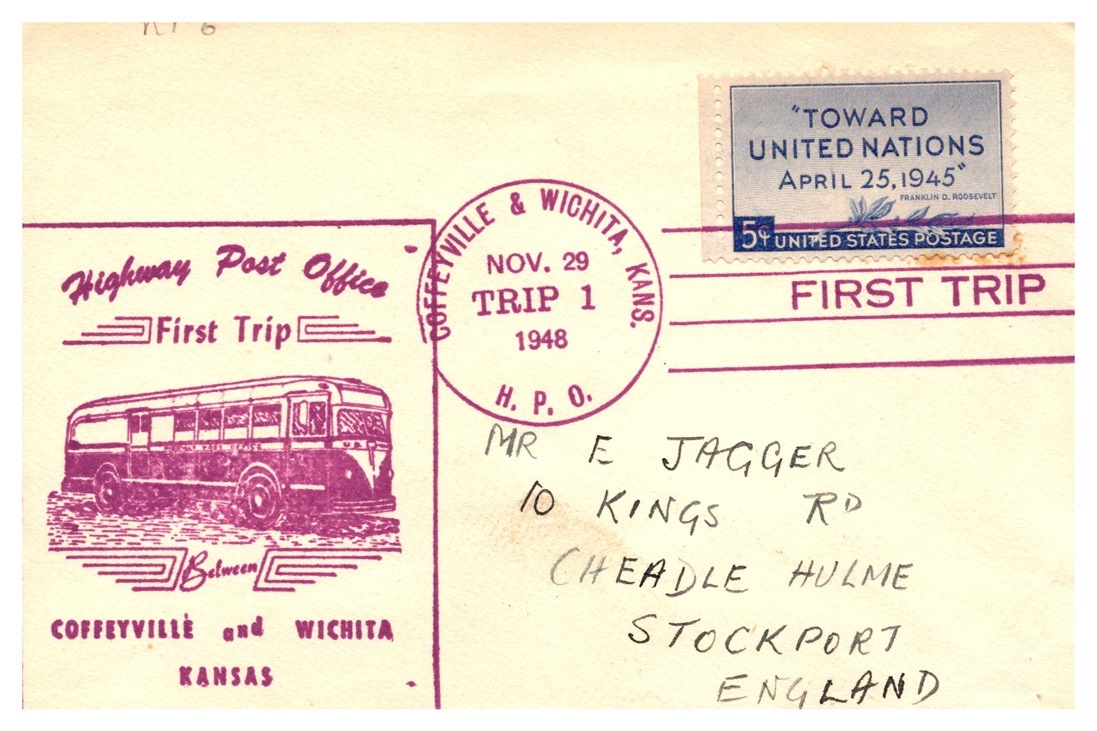 "TOWARD
UNITED NATIONS
APRIL 25, 1945"
FRANKLIN D. ROOSEVELT
5¢ UNITED STATES POSTAGE
COFFEYVILLE & WICHITA, KANS.
NOV. 29
TRIP 1
1948
H. P. O.
FIRST TRIP
Highway Post Office
First Trip
Between
COFFEYVILLE and WICHITA
KANSAS
MR E JAGGER
10 KINGS RD
CHEADLE HULME
STOCKPORT
ENGLAND